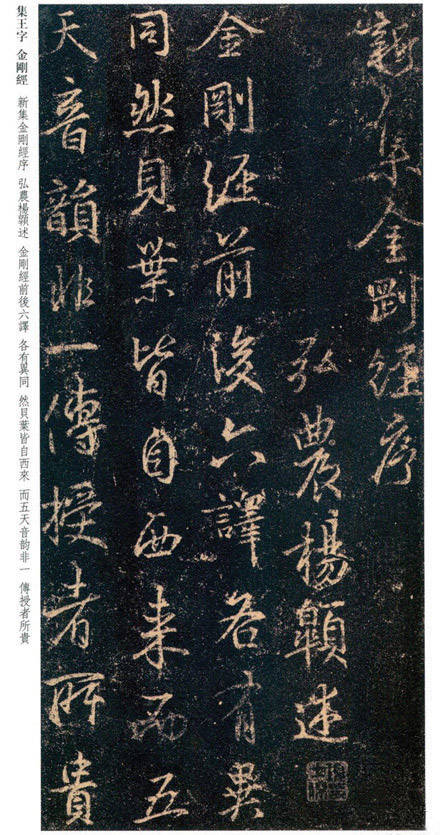 新集金剛經序
弘農楊顗述
金剛經前後六譯各有異
同然貝葉皆自西来而五
天音韻非一傳授者所貴
集王字 金剛經 新集金剛經序 弘農楊顗述 金剛經前後六譯 各有異同 然貝葉皆自西來 而五天音韵非一 傳授者所貴